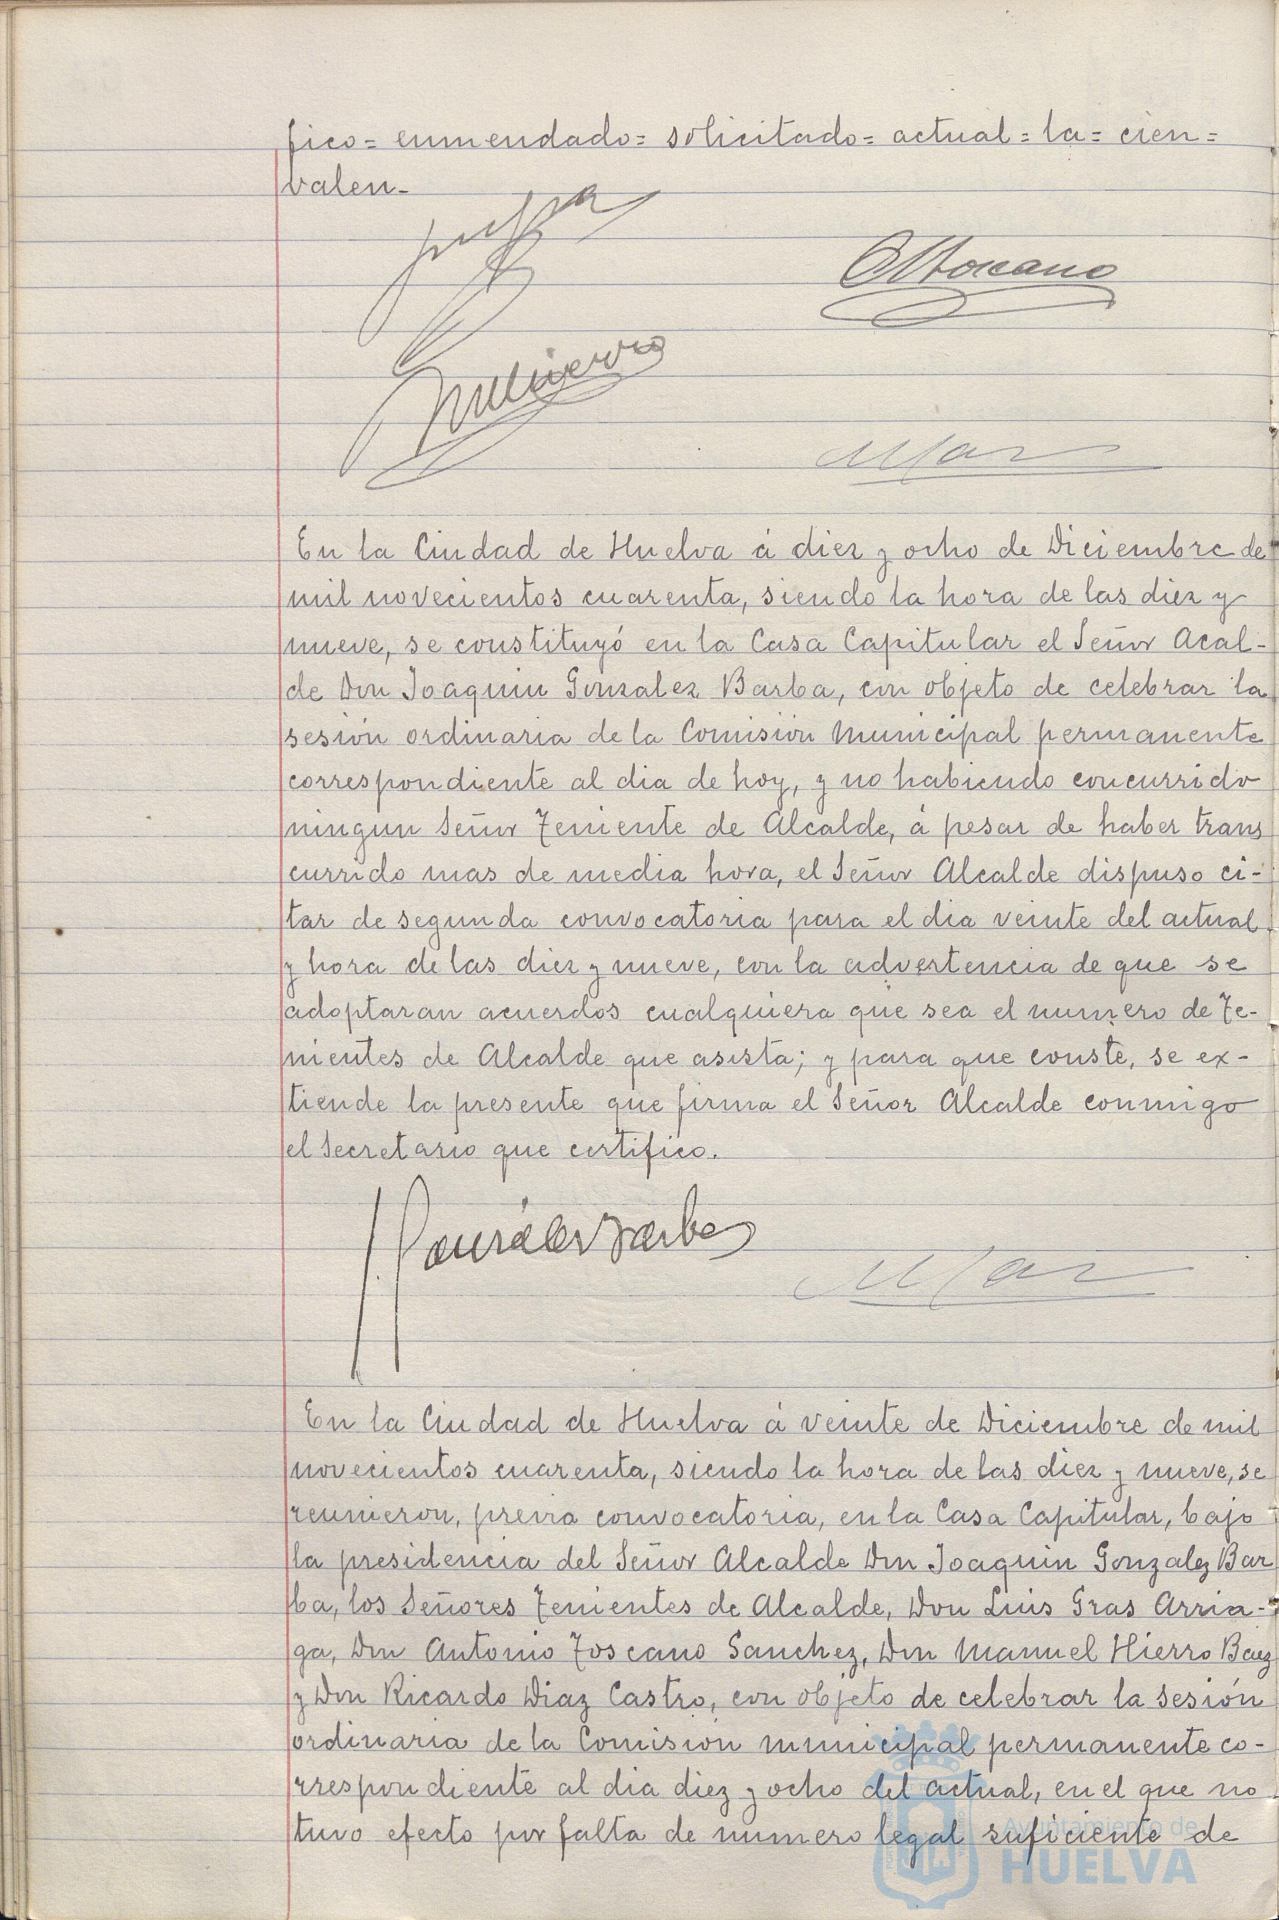 fico = enmendado = solicitado = actual = la = cien =
valen -
En la Ciudad de Huelva á diez y ocho de Diciembre de
mil novecientos cuarenta, siendo la hora de las diez y
nueve, se constituyó en la Casa Capitular el Señor Acal-
de Don Joaquin Gonzalez Barba, con objeto de celebrar la
sesión ordinaria de la Comisión Municipal permanente
correspondiente al dia de hoy, y no habiendo concurrido
ningun Señor Teniente de Alcalde, á pesar de haber trans
currido mas de media hora, el Señor Alcalde dispuso ci-
tar de segunda convocatoria para el dia veinte del actual
y hora de las diez y nueve, con la advertencia de que se
adoptaran acuerdos cualquiera que sea el numero de Te-
nientes de Alcalde que asista; y para que conste, se ex-
tiende la presente que firma el Señor Alcalde conmigo
el Secretario que certifico.
J. González Barba
En la Ciudad de Huelva á veinte de Diciembre de mil
novecientos cuarenta, siendo la hora de las diez y nueve, se
reunieron, previa convocatoria, en la Casa Capitular, bajo
la presidencia del Señor Alcalde Don Joaquin Gonzalez Bar
ba, los Señores Tenientes de Alcalde, Don Luis Gras Arria-
ga, Don Antonio Toscano Sanchez, Don Manuel Hierro Baez
y Don Ricardo Diaz Castro, con objeto de celebrar la sesión
ordinaria de la Comisión municipal permanente co-
rrespondiente al dia diez y ocho del actual, en el que no
tuvo efecto por falta de numero legal suficiente de
Ayuntamiento de
HUELVA